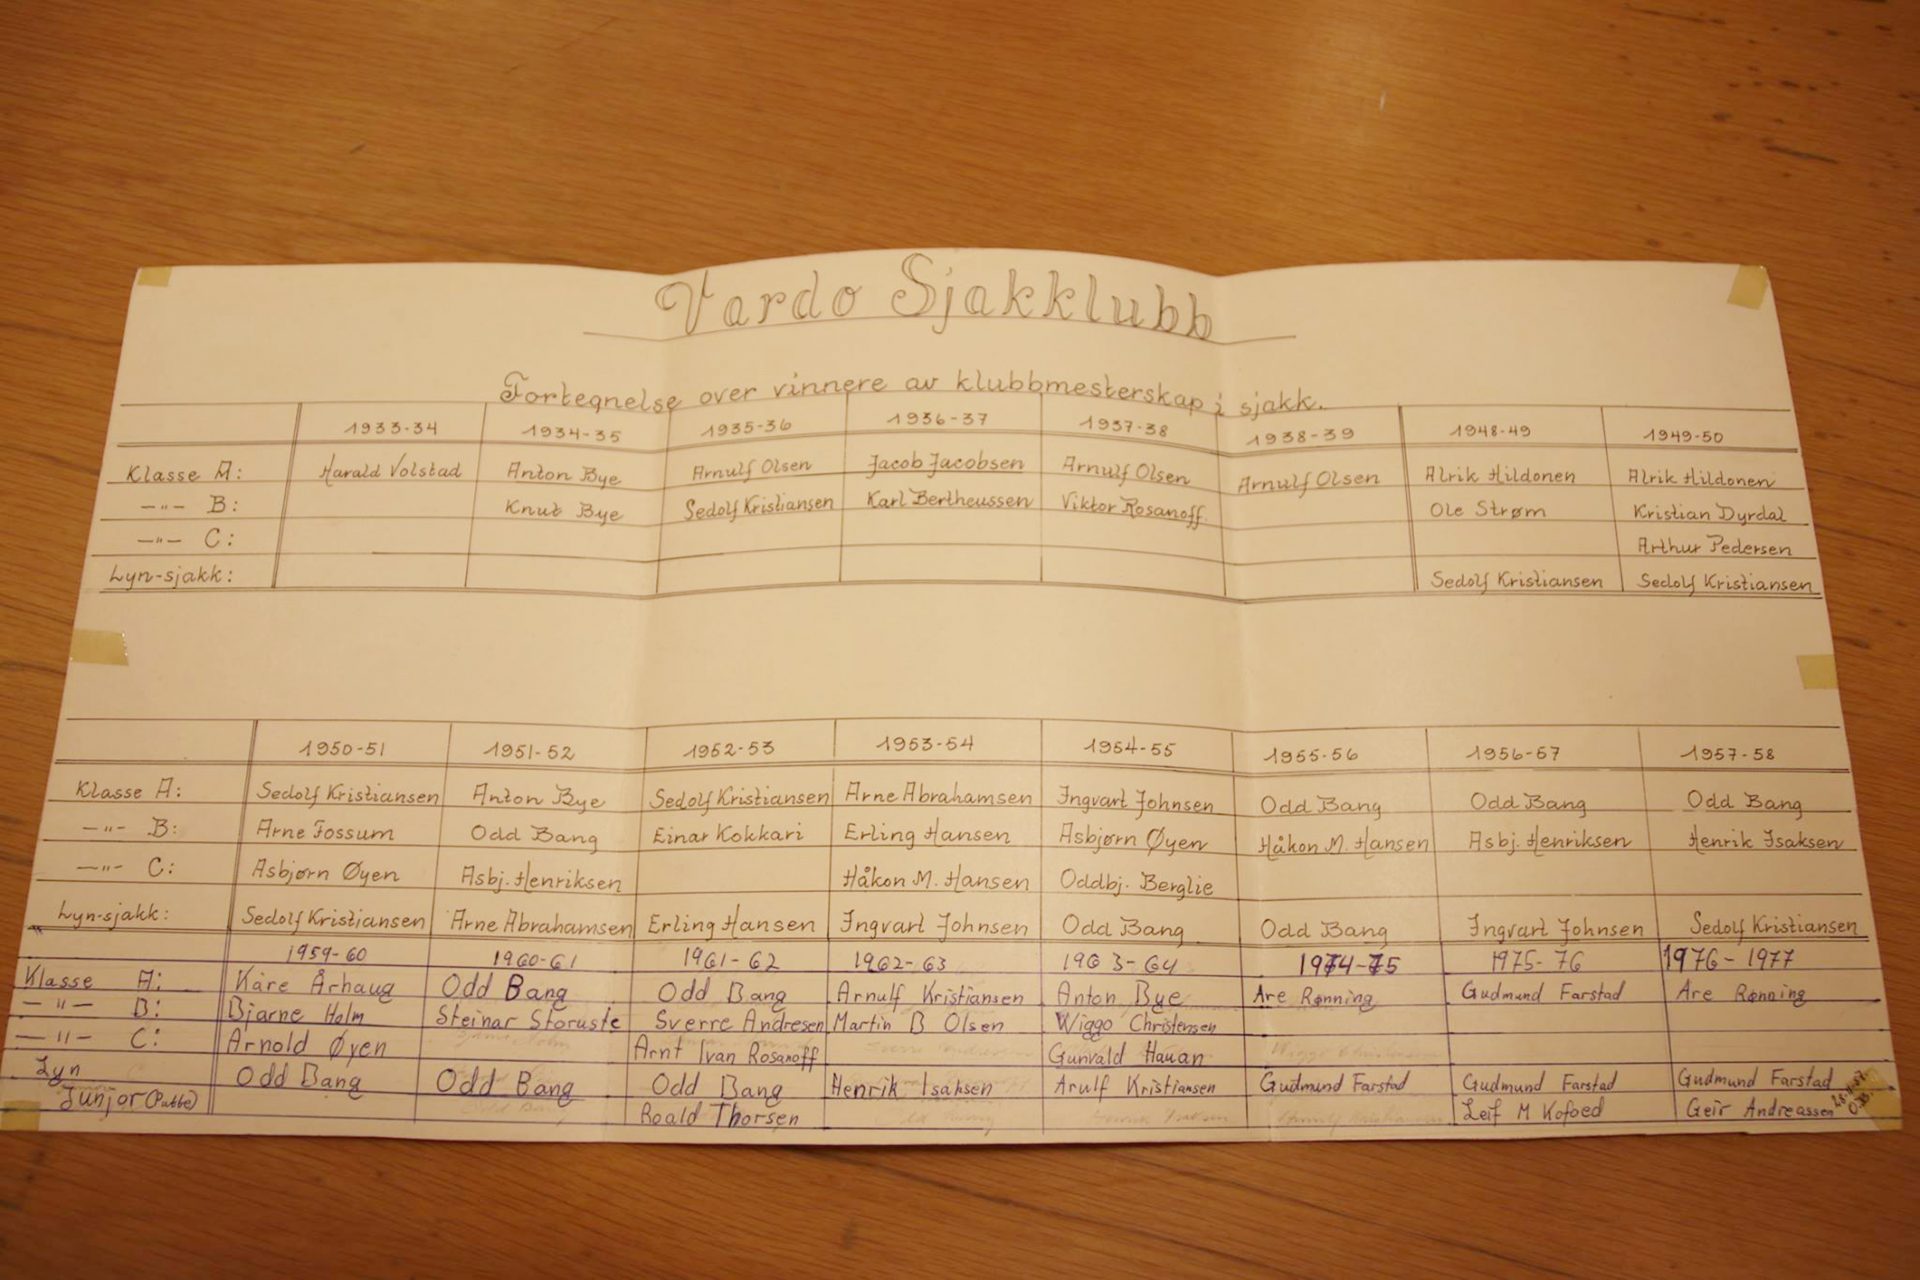 Vardø Sjakklubb
Fortegnelse over vinnere av klubbmesterskap i sjakk.
1933-34 1934-35 1935-36 1936-37 1937-38 1938-39 1948-49 1949-50
Klasse A: Harald Volstad Anton Bye Arnulf Olsen Jacob Jacobsen Arnulf Olsen Arnulf Olsen Alrik Hildonen Alrik Hildonen
—"— B: Knut Bye Sedolf Kristiansen Karl Bertheussen Viktor Rosanoff. Ole Strøm Kristian Dyrdal
—"— C: Arthur Pedersen
Lyn-sjakk: Sedolf Kristiansen Sedolf Kristiansen
1950-51 1951-52 1952-53 1953-54 1954-55 1955-56 1956-57 1957-58
Klasse A: Sedolf Kristiansen Anton Bye Sedolf Kristiansen Arne Abrahamsen Ingvart Johnsen Odd Bang Odd Bang Odd Bang
—"— B: Arne Fossum Odd Bang Einar Kokkari Erling Hansen Asbjørn Øyen Håkon M. Hansen Asbj. Henriksen Henrik Isaksen
—"— C: Asbjørn Øyen Asbj. Henriksen Håkon M. Hansen Oddbj. Berglie
Lyn-sjakk: Sedolf Kristiansen Arne Abrahamsen Erling Hansen Ingvart Johnsen Odd Bang Odd Bang Ingvart Johnsen Sedolf Kristiansen
1959-60 1960-61 1961-62 1962-63 1963-64 1974-75 1975-76 1976-1977
Klasse A: Kåre Århaug Odd Bang Odd Bang Arnulf Kristiansen Anton Bye Are Rønning Gudmund Farstad Are Rønning
—"— B: Bjarne Holm Steinar Storuste Sverre Andresen Martin B Olsen Wiggo Christensen
—"— C: Arnold Øyen Arnt Ivan Rosanoff Gunvald Hauan
Lyn Odd Bang Odd Bang Odd Bang Henrik Isaksen Arulf Kristiansen Gudmund Farstad Gudmund Farstad Gudmund Farstad
Junior Roald Thorsen Leif M Kofoed Geir Andreassen